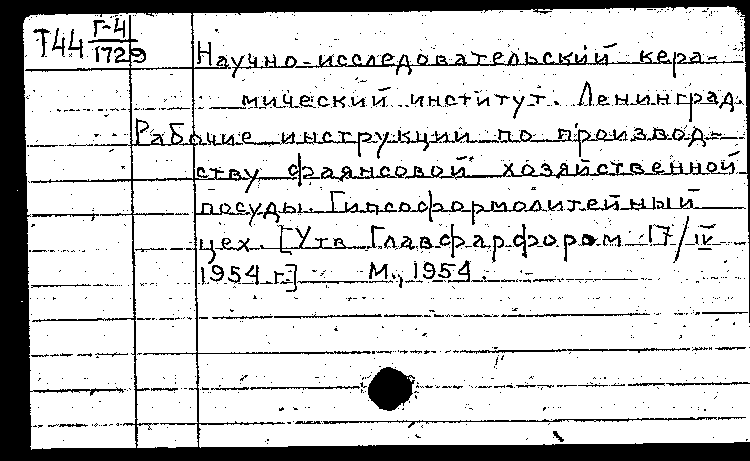 Т44 Г-4
1729
Научно-исследовательский кера-
мический институт. Ленинград.
Рабочие инструкции по производ-
ству фаянсовой хозяйственной
посуды. Гипсоформолитейный
цех. [Утв Главфарфором 17/IV
1954 г.] М., 1954.